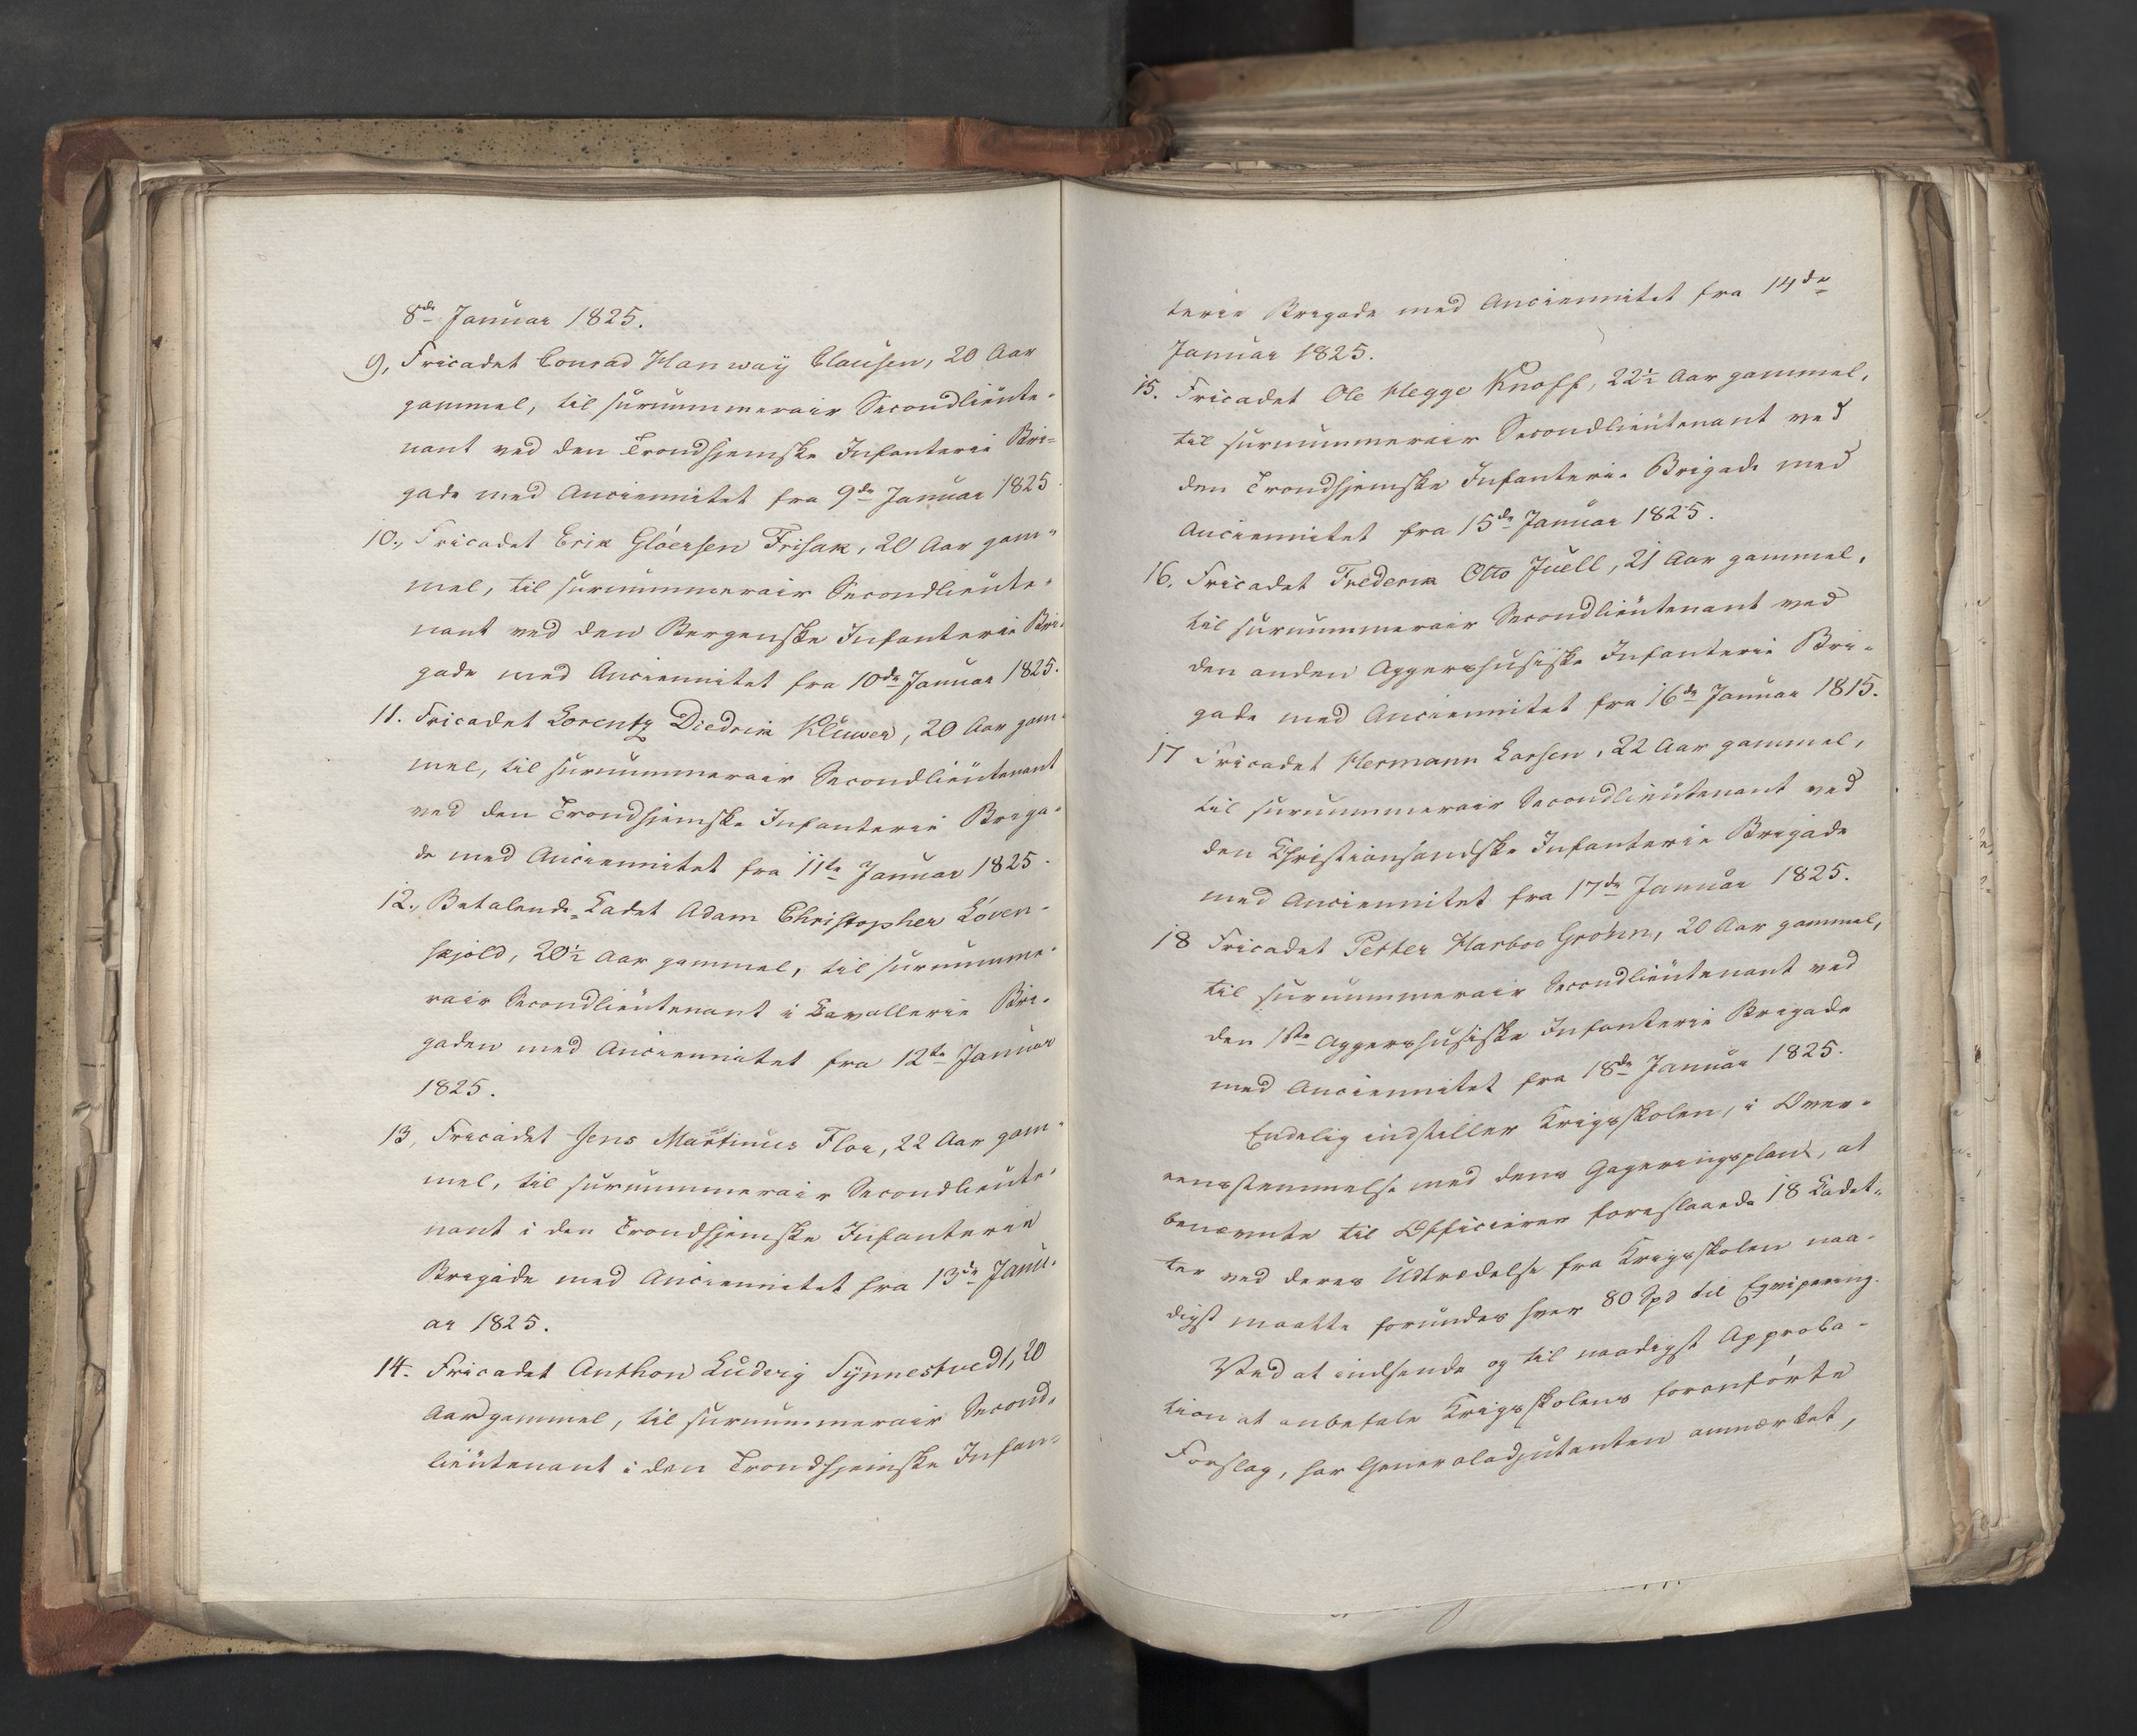 8de Januar 1825.
9, Fricadet Conrad Hanwaÿ Clausen, 20 Aar
gammel, til surnummerair Secondlieute-
nant ved den Trondhjemske Infanterie Bri=
gade med Anciennitet fra 9de Januar 1825
10., Fricadet Erik Glöersen Frisak, 20 Aar gam-
mel, til surnummerair Secondlieute-
nant ved den Bergenske Infanterie Bri-
gade med Anciennitet fra 10de Januar 1825.
11. Fricadet Lorentz Diedrik Klüwer, 20 Aar gam-
mel, til surnummerair Secondlieutenant
ved den Trondhjemske Infanterie Briga-
de med Anciennitet fra 11te Januar 1825.
12., Betalende Cadet Adam Christopher Löven-
skjold, 20½ Aar gammel, til surnumme-
rair Secondlieutenant i Cavallerie Bri-
gaden med Anciennitet fra 12te Januar
1825.
13, Fricadet Jens Martinus Flor, 22 Aar gam-
mel, til surnummerair Secondlieute-
nant i den Trondhjemske Infanterie
Brigade med Anciennitet fra 13de Janu-
ar 1825.
14. Fricadet Anthon Ludvig Synnestvedt, 20
Aar gammel, til surnummerair Second-
lieutenant i den Trondhjemske Infan-
terie Brigade med Anciennitet fra 14de
Januar 1825.
15. Fricadet Ole Hegge Knoff, 22½ Aar gammel,
til surnummerair Secondlieutenant ved
den Trondhjemske Infanterie Brigade med
Anciennitet fra 15de Januar 1825.
16. Fricadet Frederik Otto Juell, 21 Aar gammel,
til surnummerair Secondlieutenant ved
den anden Aggershusiske Infanterie Bri-
gade med Anciennitet fra 16de Januar 1815.
17 Fricadet Hermann Larsen, 22 Aar gammel,
til surnummerair Secondlieutenant ved
den Christiansandske Infanterie Brigade
med Anciennitet fra 17de Januar 1825.
18 Fricadet Petter Harboe Gröen, 20 Aar gammel,
til surnummerair Secondlieutenant ved
den 1ste Aggershusiske Infanterie Brigade
med Anciennitet fra 18de Januar 1825.
Endelig indstiller Krigsskolen, i Over-
eensstemmelse med dens Gageringsplan, at
benævnte til Officierer foreslaaede 18 Cadet-
ter ved deres Udtrædelse fra Krigsskolen naa-
digst maatte forundes hver 80 Spd til Eqvipering.
Ved at indsende og til naadigst Approba-
tion at anbefale Krigsskolens foranförte
Forslag, har Generaladjutanten anmærket,